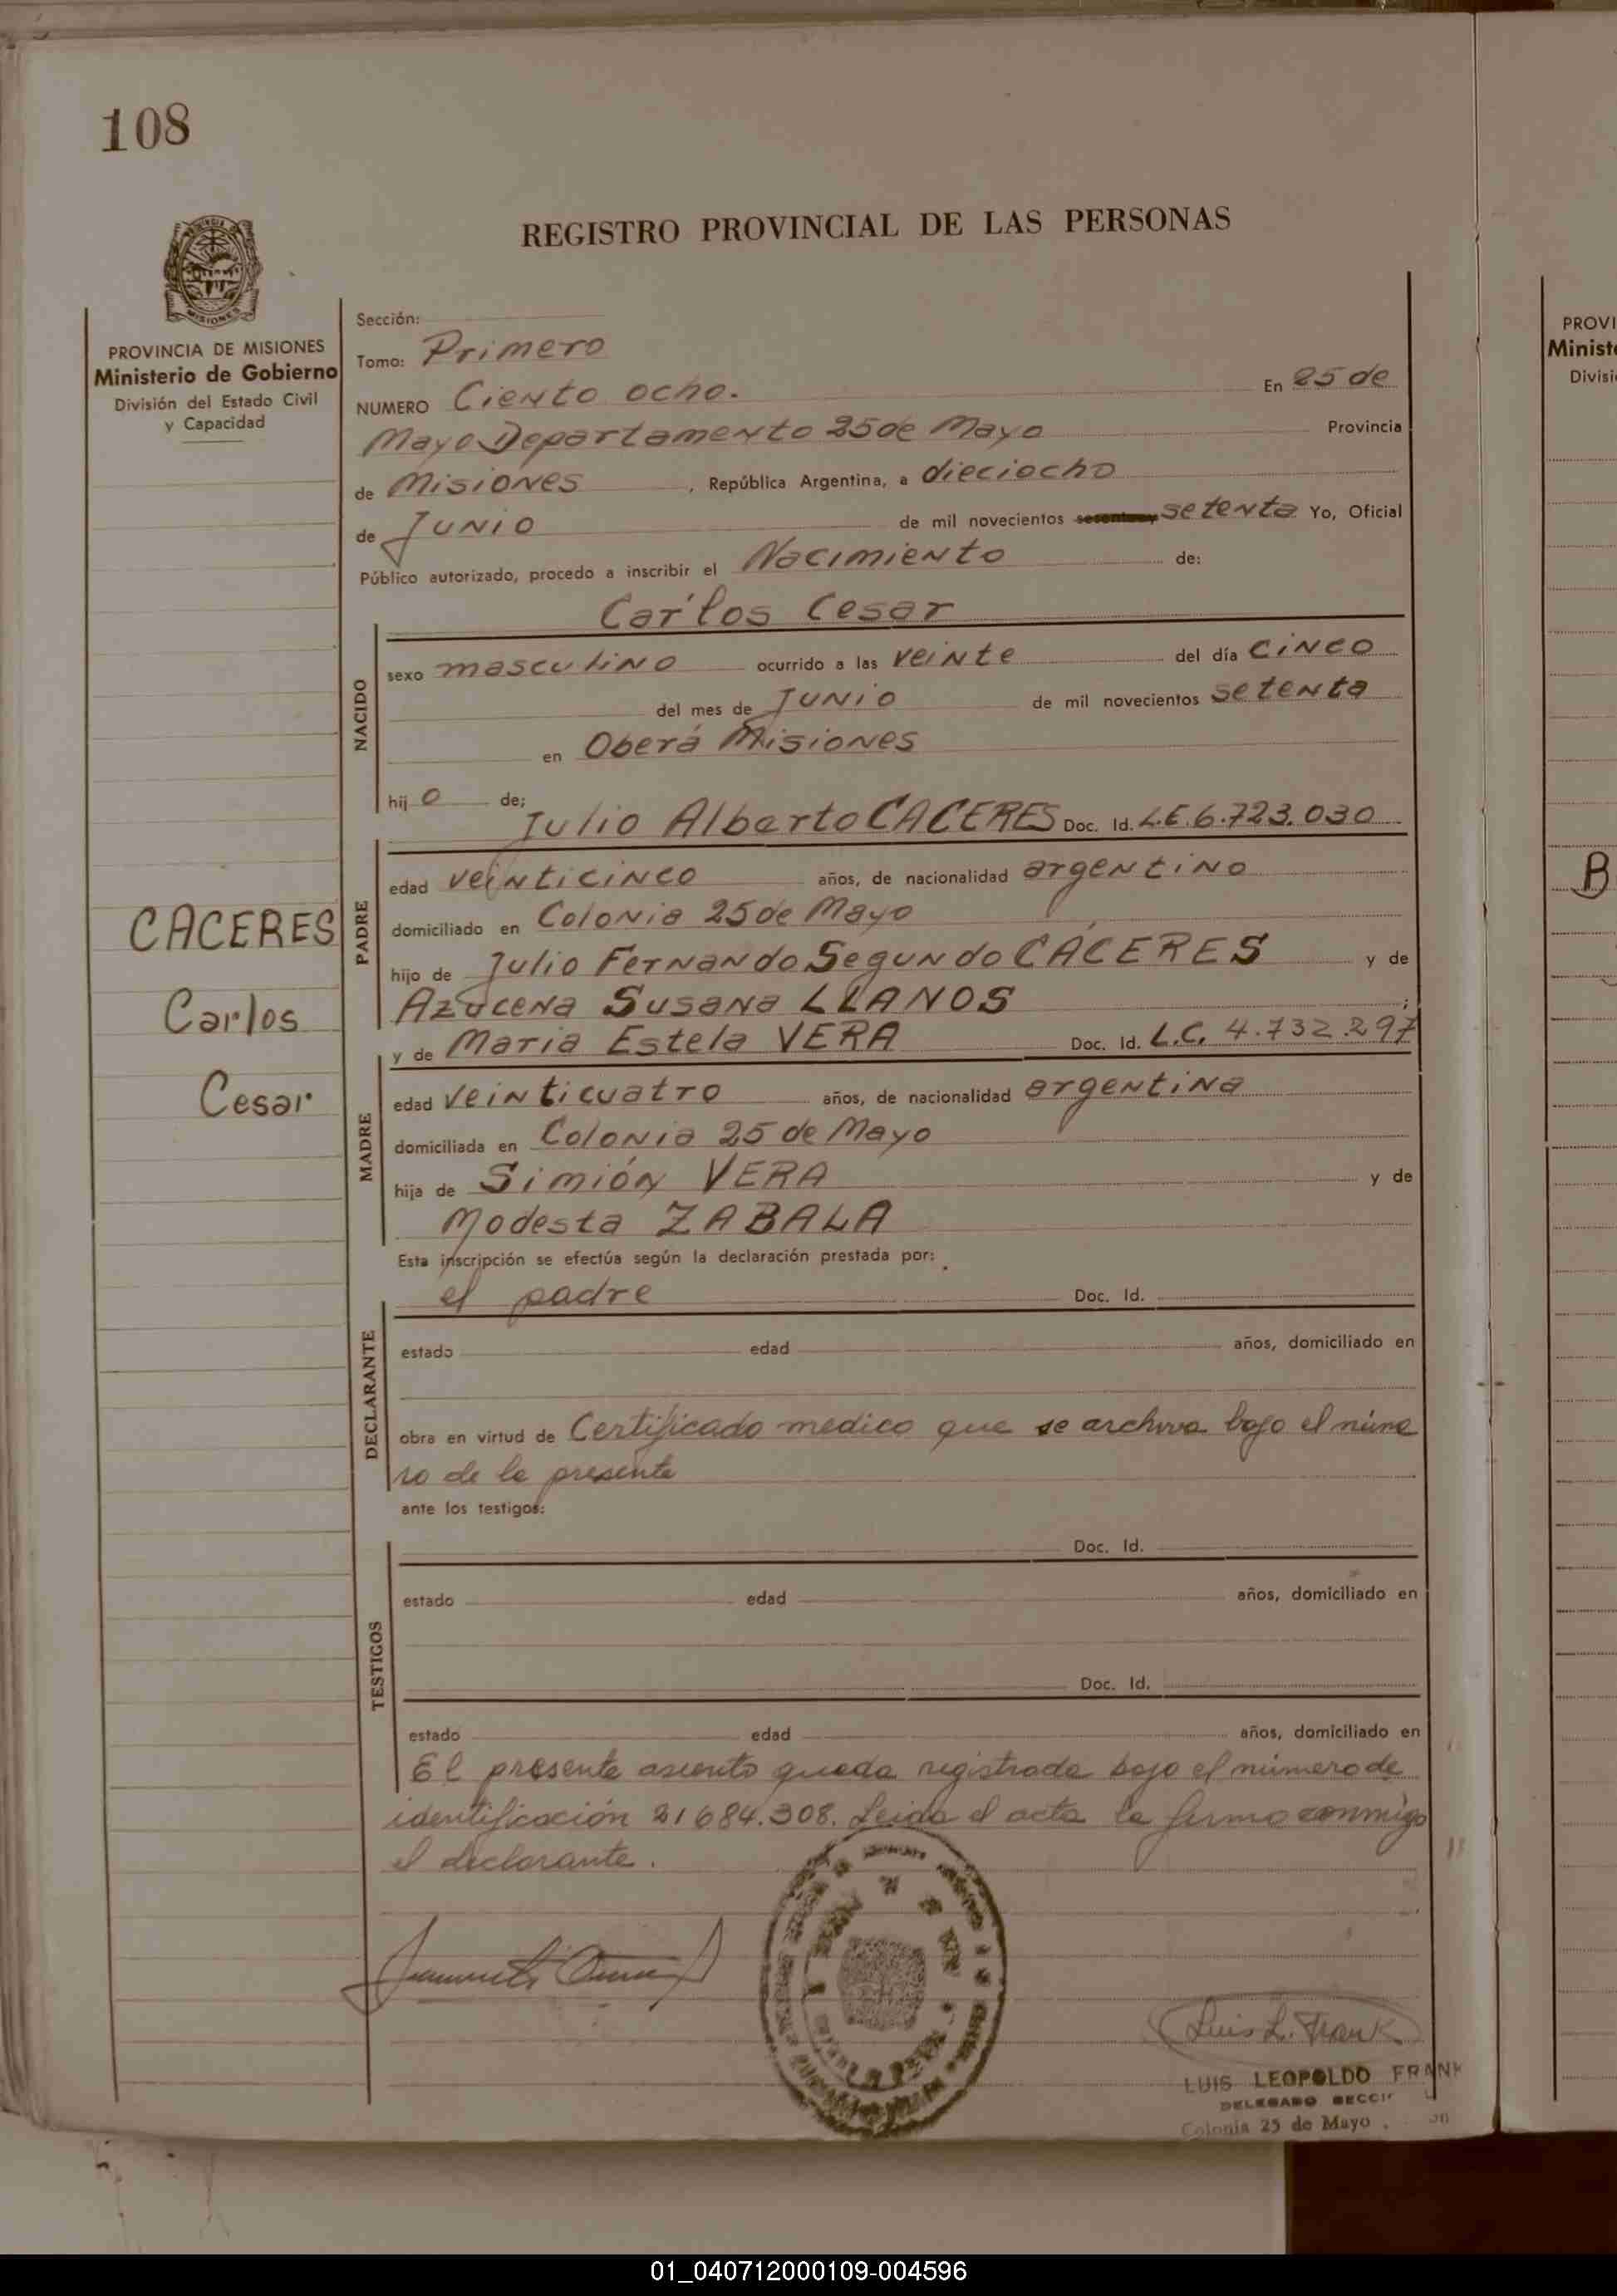 108
REGISTRO PROVINCIAL DE LAS PERSONAS
MISIONES
PROVINCIA DE MISIONES
Ministerio de Gobierno
División del Estado Civil
y Capacidad
Sección:
Tomo: Primero
NUMERO Ciento ocho. En 25 de
Mayo Departamento 25 de Mayo Provincia
de Misiones, República Argentina, a dieciocho
de Junio de mil novecientos setenta Yo, Oficial
Público autorizado, procedo a inscribir el Nacimiento de:
Carlos Cesar
NACIDO
sexo masculino ocurrido a las veinte del día cinco
del mes de Junio de mil novecientos setenta
en Oberá Misiones
hij o de;
Julio Alberto CACERES Doc. Id. L.E. 6.723.030
PADRE
edad veinticinco años, de nacionalidad argentino
domiciliado en Colonia 25 de Mayo
hijo de Julio Fernando Segundo CÁCERES y de
Azucena Susana LLANOS ;
CACERES
Carlos
Cesar
y de Maria Estela VERA Doc. Id. L.C. 4.732.297
MADRE
edad veinticuatro años, de nacionalidad argentina
domiciliada en Colonia 25 de Mayo
hija de Simión VERA y de
Modesta ZABALA
Esta inscripción se efectúa según la declaración prestada por:
el padre Doc. Id.
DECLARANTE
estado edad años, domiciliado en
obra en virtud de Certificado medico que se archiva bajo el núme
ro de la presente
ante los testigos:
Doc. Id.
TESTIGOS
estado edad años, domiciliado en
Doc. Id.
estado edad años, domiciliado en
El presente asiento queda registrada bajo el número de
identificación 21684.308. Leida el acta la firma conmigo
el declarante.
Luis L. Frank
LUIS LEOPOLDO FRANK
DELEGADO SECCI
Colonia 25 de Mayo
PROVI
Minist
Divisi
B
01_040712000109-004596